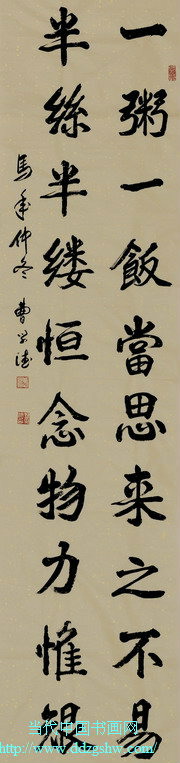 一粥一飯當思来之不易
半絲半缕恒念物力惟艱
馬年仲冬
当代中国书画网
http://www.ddzgshw.com